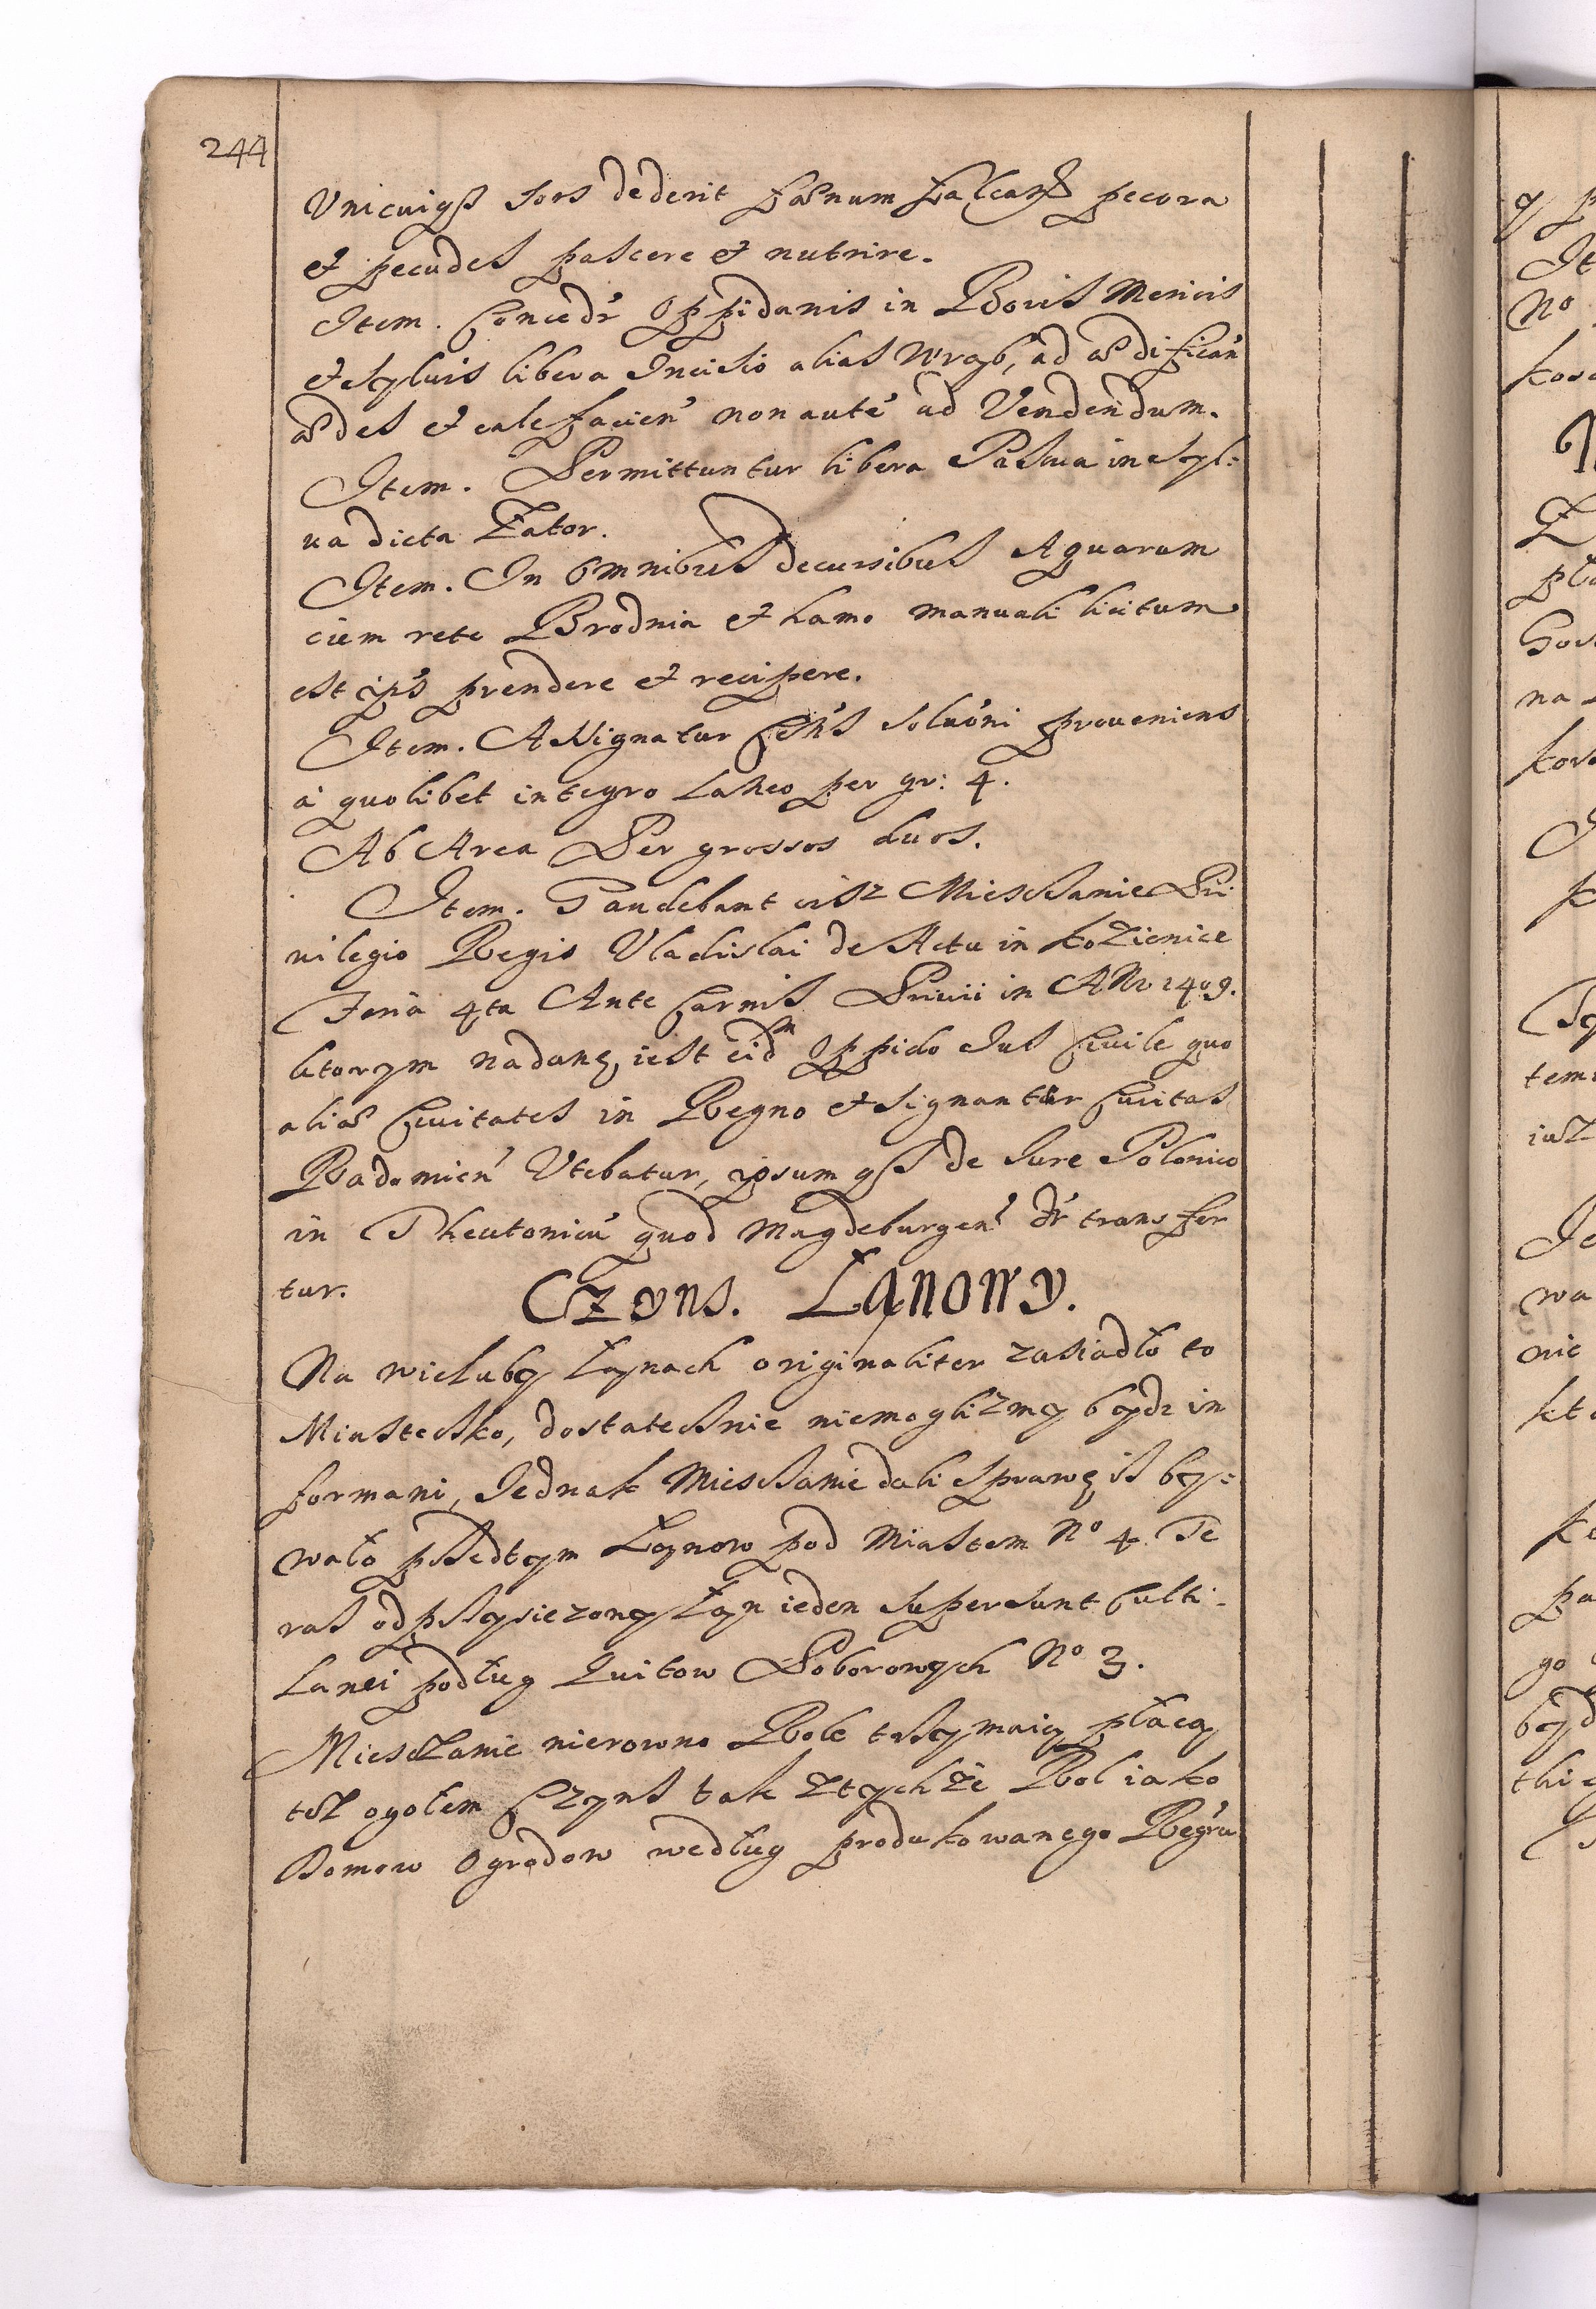 244
Vnicuiqß sors dederit fænum falcare pecora
et pecudes pascere et nutrire.
Item. Conced'r Oppidanis in Boris Mericis
et Syluis libera Incisio alias Wrąb, ad ædifican'
ædes et calefacien' non aute' ad Vendendum.
Item. Permittuntur libera Pascua in Syl:
ua dicta Zator.
Item. In omnibus decursibus Aquarum
cum rete Brodnia et hamo manuali licitum
est ip's prendere et recipere.
Item. Assignatur Cens's solucini proueniens
a quolibet integro Laneo per gr: 4.
Ab Area Per grossos duos.
Item. Gaudebant ciss Miesczanie Pri
uilegio Regis Vladislai de Actu in Kozienice
Feria 4ta Ante Carnis Priuii in ANo 1409.
ktorym nadano iest eidm Oppido Jus Ciuile quo
aliæ Ciuitates in Regno et signanter Ciuitas
Radomien' Vtebatur, ipsum qß de Jure Polonico
in Theutonicu' quod Magdeburgen' d'r transfer
tur.
Czyns. Łanowy.
Na wielu by Łanach originaliter zasiadło to
Miasteczko, dostatecznie niemoglizmy bydz in
formani, Jednak Miesczanie dali sprawę isz by:
wało przedtym Łanow pod Miastem No 4. Te
ras odpszysiezony Łan ieden supersunt culti
Lanei podług Quitow Poborowych No 3.
Miesczanie nierowno Role trzymaią płacą
tesz ogołem Czyns tak z tychże Rol iako
Domow Ogrodow według produkowanego Reg'ru